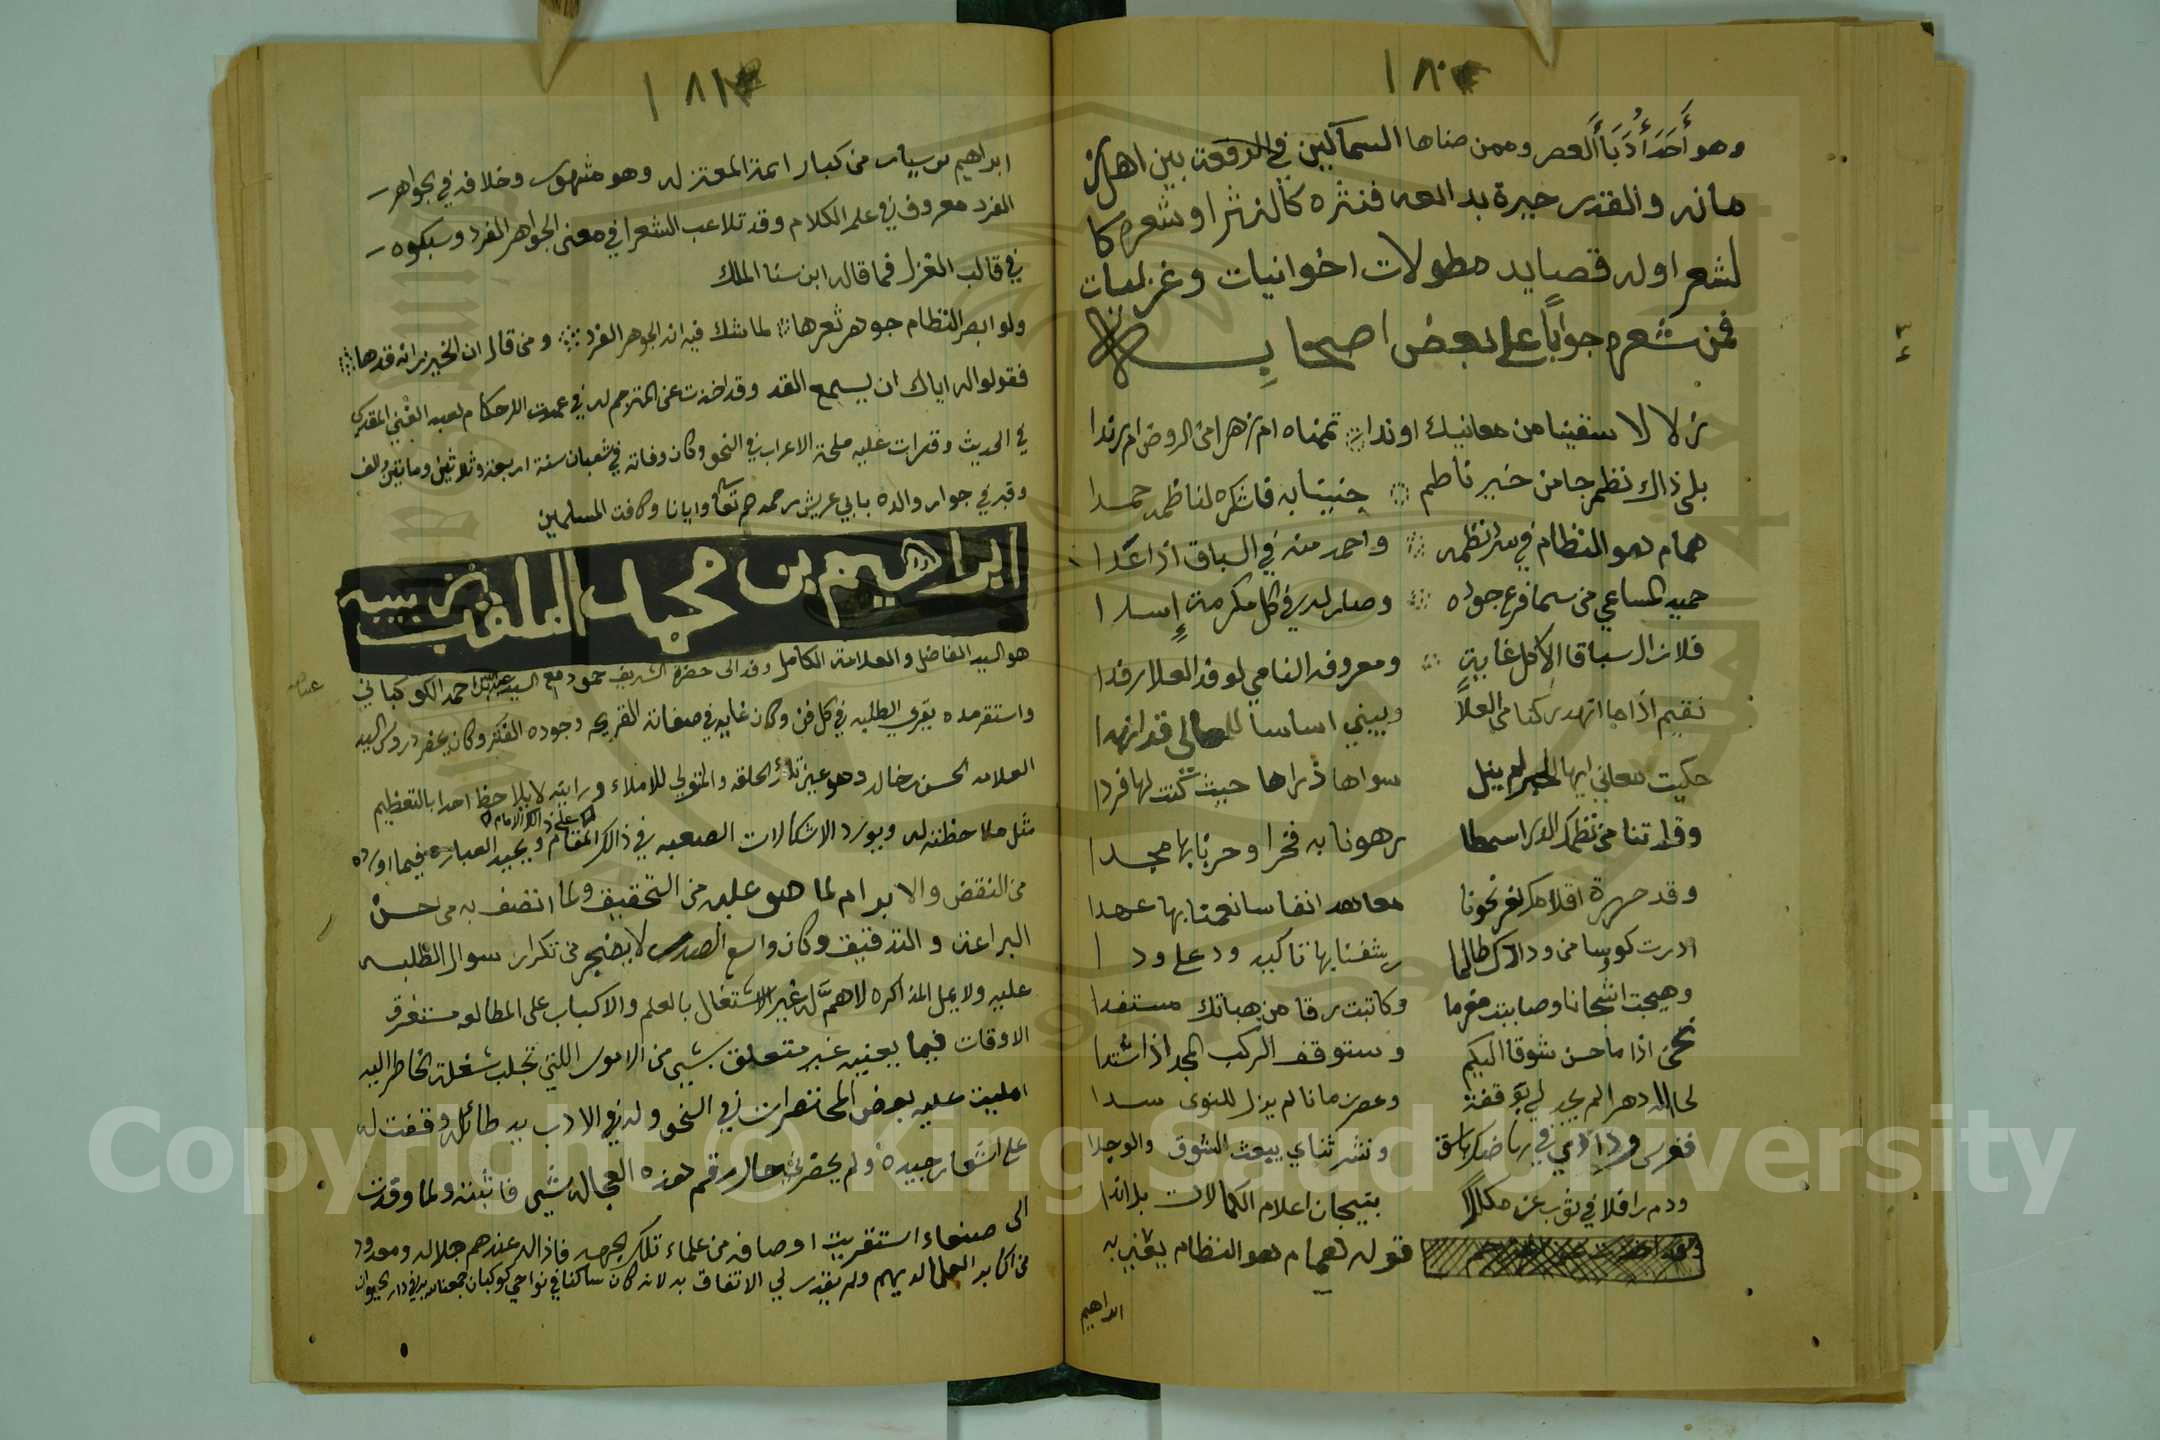 ١٨٠
وهو أَحَدُ أُدَبَاءِ العصر وممن ضاها السماكين في الرفعة بين اهل ز
مانه والقدر حيرة بدائعه فنثره كالنثرا وشعره كا
لشعرا وله قصايد مطولات اخوانيات وغزليات
فمن شعره جواباً على بعض اصحابه
زلالا سقينا من معانيك او ندا تمناه ام زهرا من الروض ام رندا
بلى ذاك نظم جا من خير ناظم حبينا به فاشكره لناظمه حمدا
همام هو النظام في سر نظمه واحمد منه في السباق اذا عدا
حميد المساعي من سما فرع جوده وصار له في كل مكرمة إسدا
فلا زال سباقا الى كل غاية ومعروفه النامي لوفد العلا رفدا
نقيم اذا ما انهد ركنا من العلا ويبني اساسا للمعالي قد انهدا
حكيت معاني ايها الحبر لم ينل سواها ذراها حيث كنت لها فردا
وقلدتنا من نظمك الدر اسمطا زهونا به فخرا وحزنا بها مجدا
وقد حبرة اقلامكم نحونا معاهد انفاسا نعمنا بها عهدا
ادرت كوسا من ودادك طالما رشفنا بها تاكيد ود على ودا
وهيجت اشجانا وصابت مغرما وكاتبت رقا من هباتك مستفدا
نحن اذا ما حن شوقا اليكم وستوقف الركب المجد اذا شتدا
لحا الله دهرا لم يجد لي بوقفة وعصر مانا لم يزل للنوى سدا
فغرس ودادي في رياضك باسق ونشر ثناي يبعث الشوق والوجدا
ودم رافلا في ثوب عز مكللا بتيجان اعلام الكمالات بل اندا
قوله همام هو النظام يشير به
ابراهيم
١٨١
ابراهيم بن سيار من كبار ائمة المعتزله وهو مشهور وخلافه في الجواهر
الفرد معروف في علم الكلام وقد تلاعب الشعرا في معنى الجواهر الفرد وسبكوه
في قالب الغزل فما قاله ابن سنا الملك
ولو ابصر النظام جوهر ثغرها لما شك فيه انه الجوهر الفرد ومن قال ان الخيزرانه قدها
فقولوا له اياك ان يسمع القد وقد اخذت عن المترجم له في عمدت الاحكام لعبد الغني المقدسي
في الحديث وقرات عليه ملحة الاعراب في النحو وكان وفاته في شعبان سنة اربعة وثلاثين وماتين والف
وقبر في جوار والده بابي عريش رحمهم الله تعالى وايانا وكافت المسلمين
ابراهيم بن محمد الملقب زبيبه
هو السيد الفاضل والعلامة الكامل وفد الى حضرة الشريف حمود مع السيد عبد الله بن احمد الكوكباني
واستقر مده يقري الطلبه في كل فن وكان غايه في صفات القريحه وجوده الفكر وكان يحضر دروس السيد
العلامه الحسن بن خالد وهو عين تلك الحلقه والمتولي للاملاء ورايته لا يلاحظ احدا بالتعظيم
مثل ملاحظته له ويورد الاشكالات الصعبه في ذالك المقام ويجيد العباره فيما اورده
من النقض والابرام لما هو عليه من التحقيق ولما اتصف به من احسن
البراعة والتدقيق وكان واسع الصدر لا يضجر من تكرار سوال الطلبه
عليه ولا يمل المذاكره لا همّ له غير الاشتغال بالعلم والاكباب على المطالعه مستغرق
الاوقات فيما يعنيه غير متعلق بشيى من الامور اللتي تجلب شغلة الخاطر اليه
امليت عليه بعض المختصرات في النحو وله في الادب يد طائل وقفت له
على اشعار جيده ولم يحضرني حال رقم هذه العجاله شيى فاثبته ولما وفدت
الى صنعاء استقريت اوصافه من علماء تلك الجهه فاذا له عندهم جلاله ومعدود
من اكابر العلما لديهم ولم يقدر لي الاتفاق به لانه كان ساكنا في نواحي كوكبان جمعنا الله به في دار الحيوان
Copyright © King Saud University